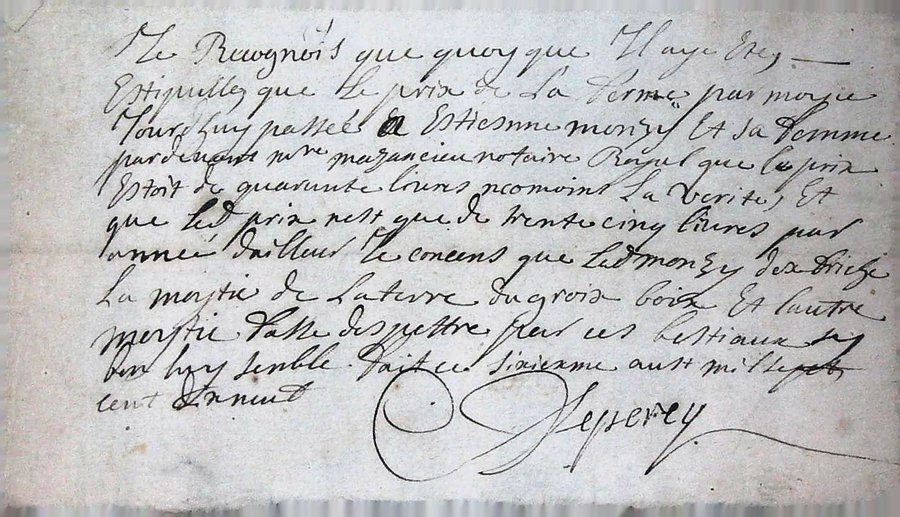 Je Recognois que quoy que Il aye Este
Estipullez que Le prix de La ferme par moy ce
Jourdhuy passée a Estienne monzy Et sa femme
pardevant mre mazancieu notaire Royal que le prix
Estoit de quarante livres neomoins La verite Et
que led prix nest que de trente cinq livres par
année dailleur Je concens que led monzy
La moytie de La terre du groix boix Et lautre
moytie fasse des pettre par ces bestiaux sy
bon luy semble. fait ce sixienme aust mil sept
cent